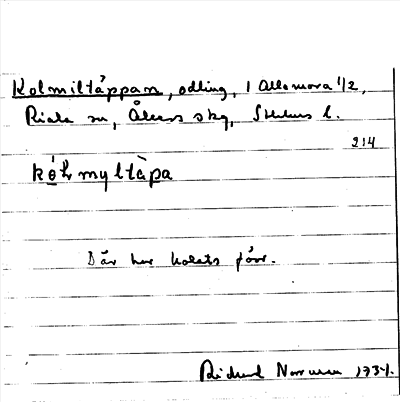 Kolmiltäppan, odling, i Allamora 1/2,
Riala sn, Åkers skg, Sthlms l.
214
kó̱lmyltàpa
Där har kolats förr.
Rickard Norrman 1934.